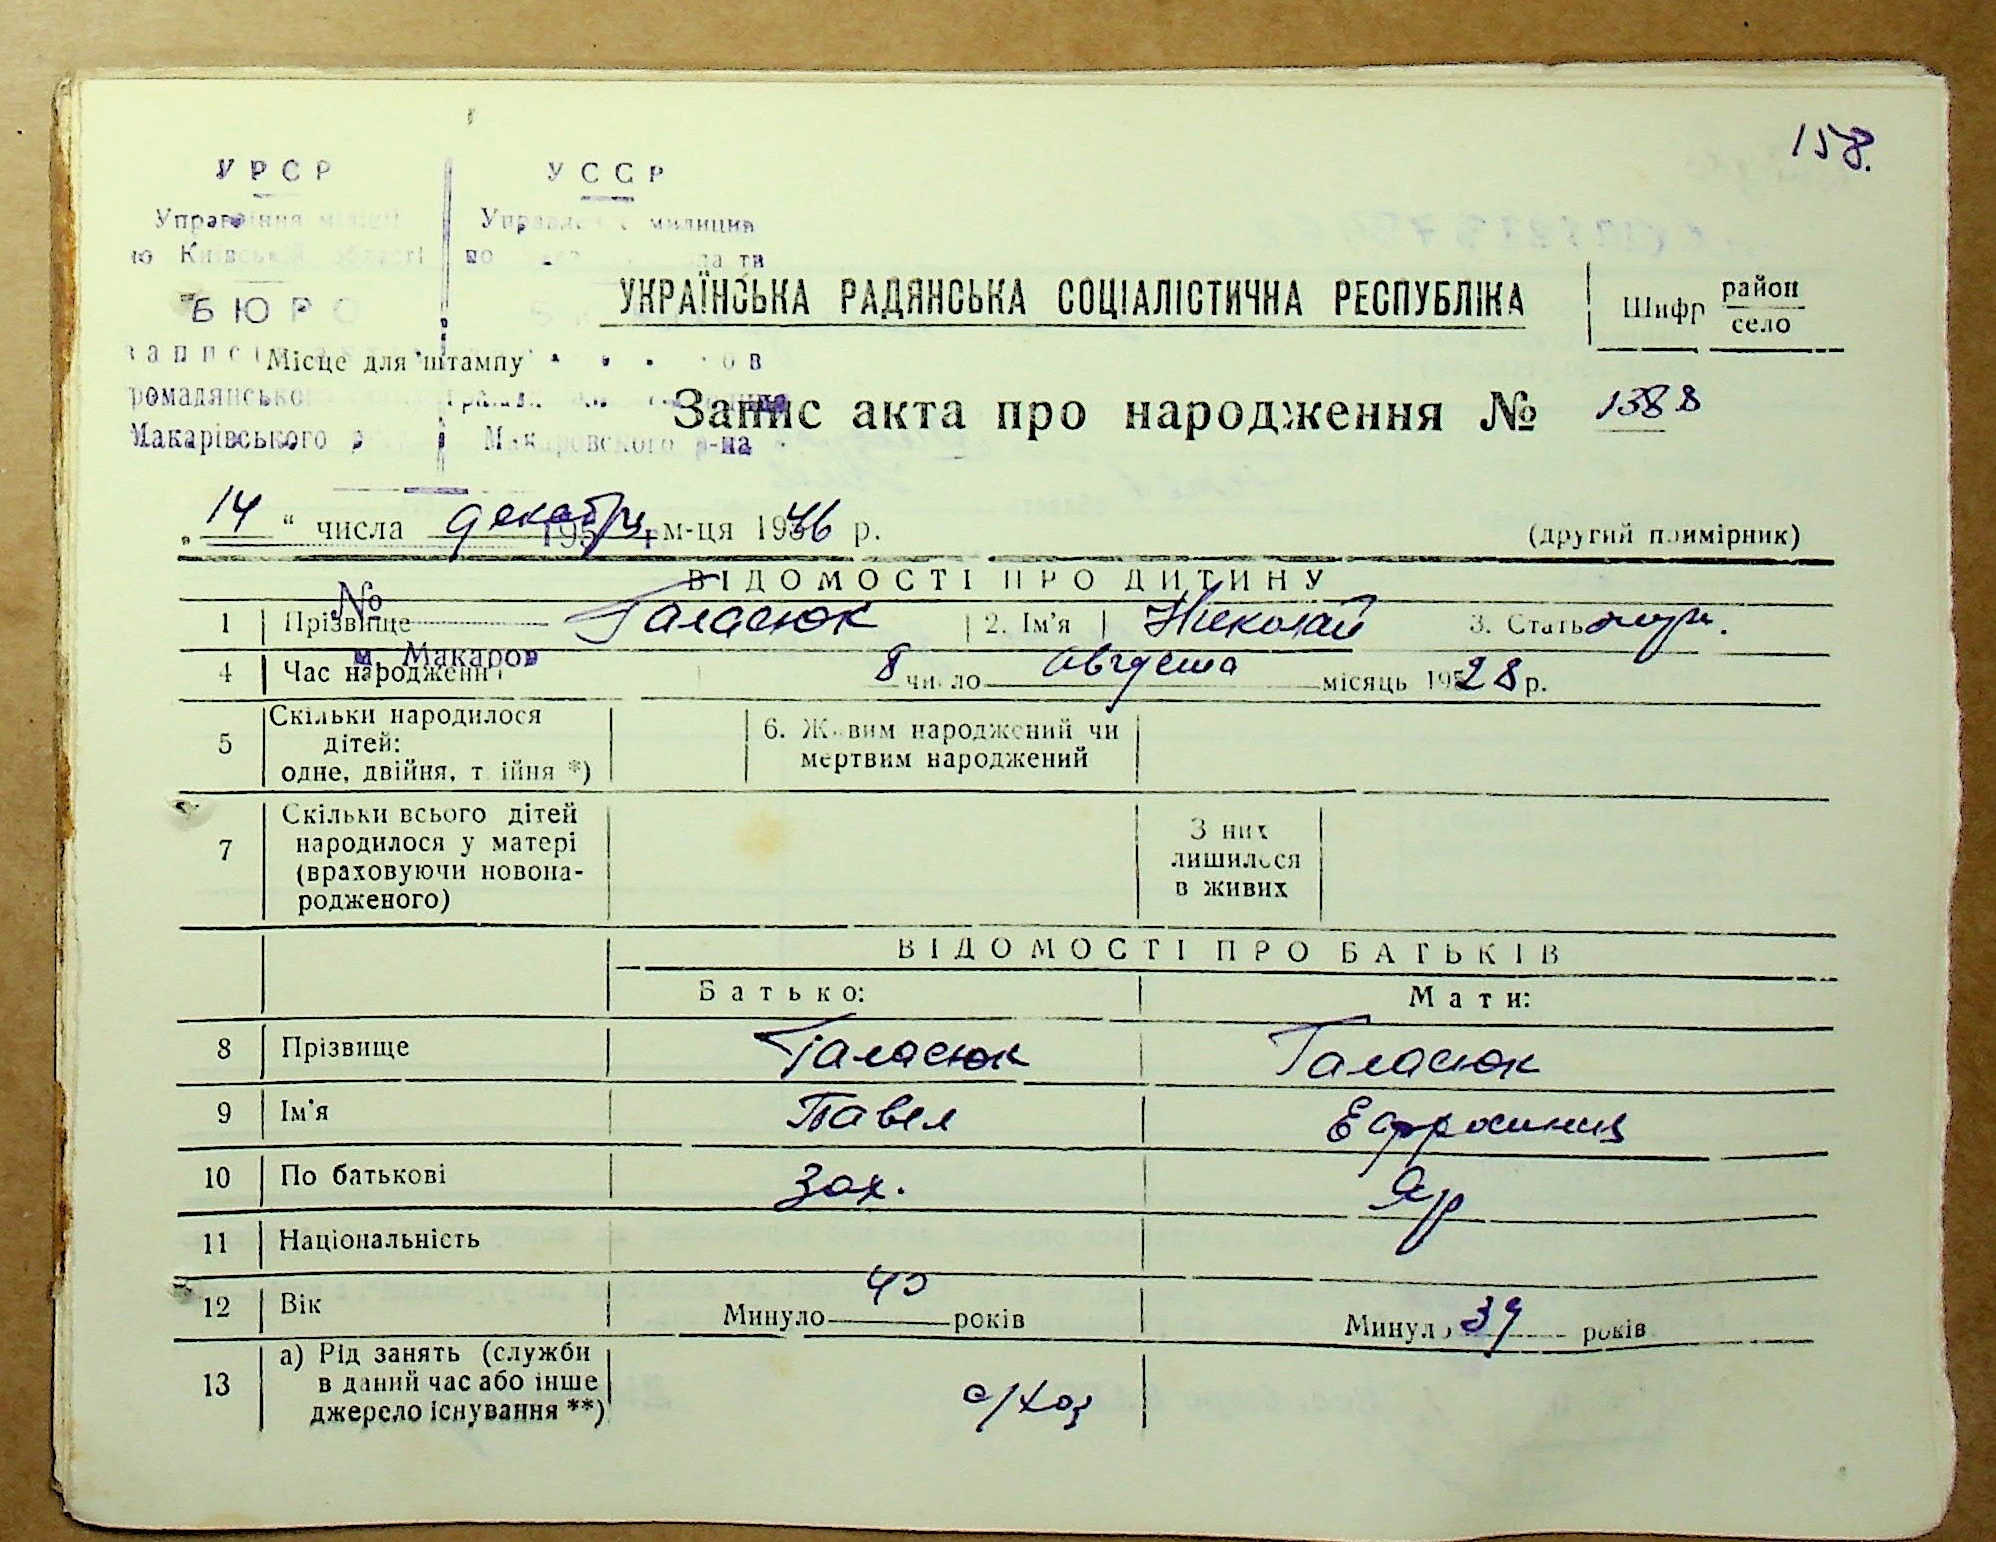 158.
УРСР
УССР
Управління міліції
Управлен милиции
по Київській області
по
БЮРО
УКРАЇНСЬКА РАДЯНСЬКА СОЦІАЛІСТИЧНА РЕСПУБЛІКА
Шифр район село
Місце для штампу
Запис акта про народження № 1388
Макарівського р
Макаровского р-на
„14“ числа декабря м-ця 1946 р.
(другий примірник)
ВІДОМОСТІ ПРО ДИТИНУ
№
1 Прізвище Галасюк 2. Ім'я Николай 3. Стать муж.
м. Макаров
4 Час народження 8 число августа місяць 1928 р.
5 Скільки народилося дітей: одне, двійня, трійня *)
6. Живим народжений чи мертвим народжений
7 Скільки всього дітей народилося у матері (враховуючи новонародженого)
З них лишилося в живих
ВІДОМОСТІ ПРО БАТЬКІВ
Батько: Мати:
8 Прізвище Галасюк Галасюк
9 Ім'я Павел Ефросиния
10 По батькові Зах. Яр
11 Національність
12 Вік Минуло 40 років Минуло 39 років
13 а) Рід занять (служби в даний час або інше джерело існування **)
с/хоз